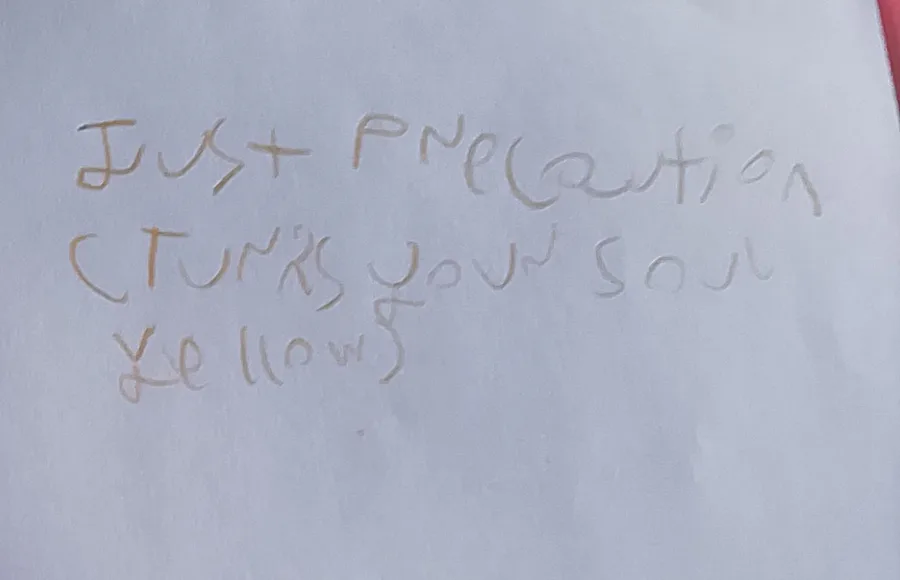 Just Precaution
(Turns your soul
yellow)